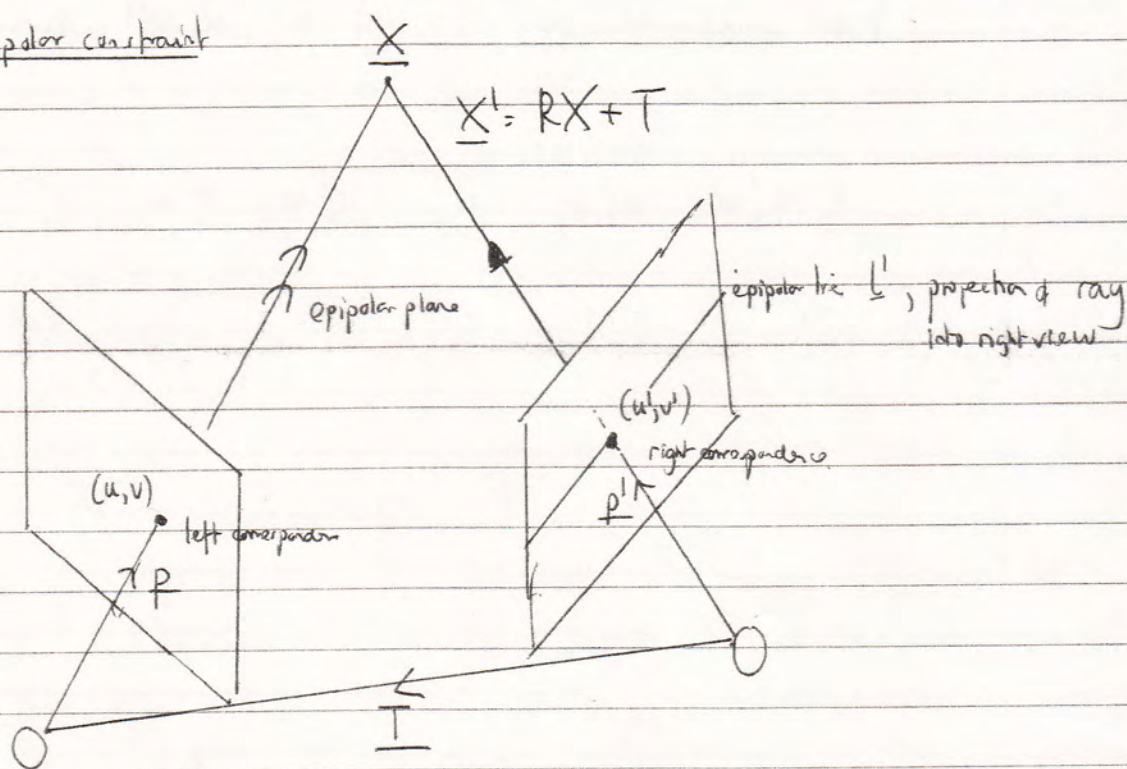 polar constraint
X
X' = RX + T
epipolar plane
epipolar line L', projection of ray
into right view
(u, v)
left correspondence
p
(u', v')
right correspondence
p'
O
T
O